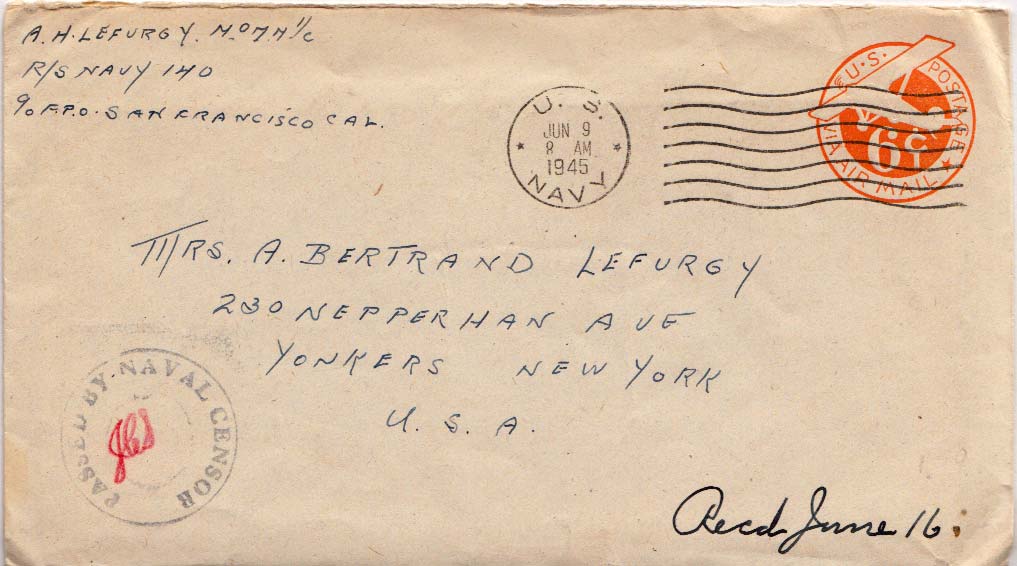 A. H. LEFURGY. MoMM 1/c
R/S NAVY 140
c/o F.P.O. SAN FRANCISCO CAL.
U. S.
JUN 9
8 AM
1945
NAVY
U.S. POSTAGE
6¢
VIA AIR MAIL
MRS. A. BERTRAND LEFURGY
230 NEPPERHAN AVE
YONKERS NEW YORK
U. S. A.
PASSED BY NAVAL CENSOR
Recd June 16.